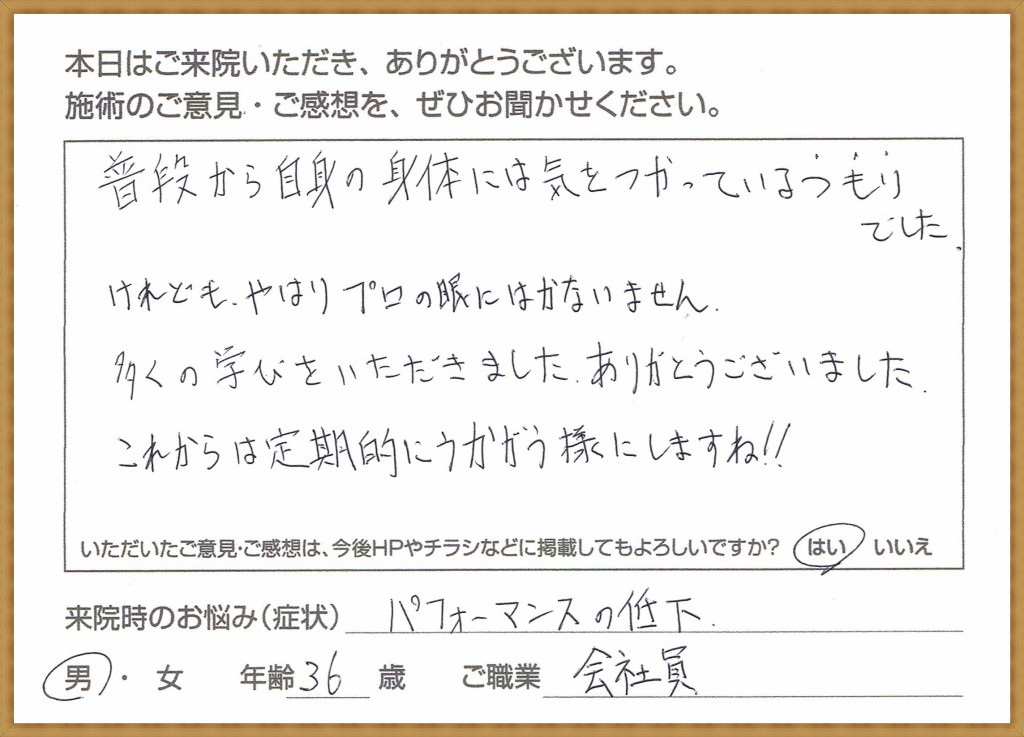 本日はご来院いただき、ありがとうございます。
施術のご意見・ご感想を、ぜひお聞かせください。
普段から自身の身体には気をつかっているつもり
でした.
けれども、やはりプロの眼にはかないません.
多くの学びをいただきました.ありがとうございました.
これからは定期的にうかがう様にしますね!!
いただいたご意見・ご感想は、今後HPやチラシなどに掲載してもよろしいですか? はい いいえ
来院時のお悩み(症状) パフォーマンスの低下.
男・女 年齢 36 歳 ご職業 会社員